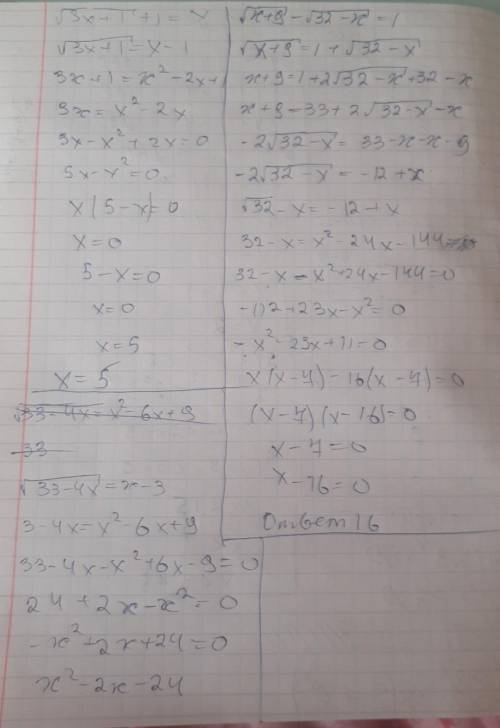 √3x+1 + 1 = x
√3x+1 = x - 1
3x+1 = x² - 2x+
3x = x² - 2x
3x - x² + 2x = 0
5x - x² = 0
x(5-x) = 0
x = 0
5 - x = 0
x = 0
x = 5
x = 5
√33-4x = x² - 6x + 9
33
√33-4x = x - 3
3-4x = x² - 6x + 9
33 - 4x - x² + 6x - 9 = 0
24 + 2x - x² = 0
-x² + 2x + 24 = 0
x² - 2x - 24
√x+9 - √32-x = 1
√x+9 = 1 + √32-x
x+9 = 1 + 2√32-x + 32 - x
x+9 = 33 + 2√32-x - x
-2√32-x = 33 - x - x - 9
-2√32-x = -12 + x
√32 - x = -12 + x
32 - x = x² - 24x - 144
32 - x - x² + 24x - 144 = 0
-112 + 23x - x² = 0
- x² - 23x + 11 = 0
x(x-7) - 16(x-7) = 0
(x-7)(x-16) = 0
x - 7 = 0
x - 16 = 0
Ответ 16